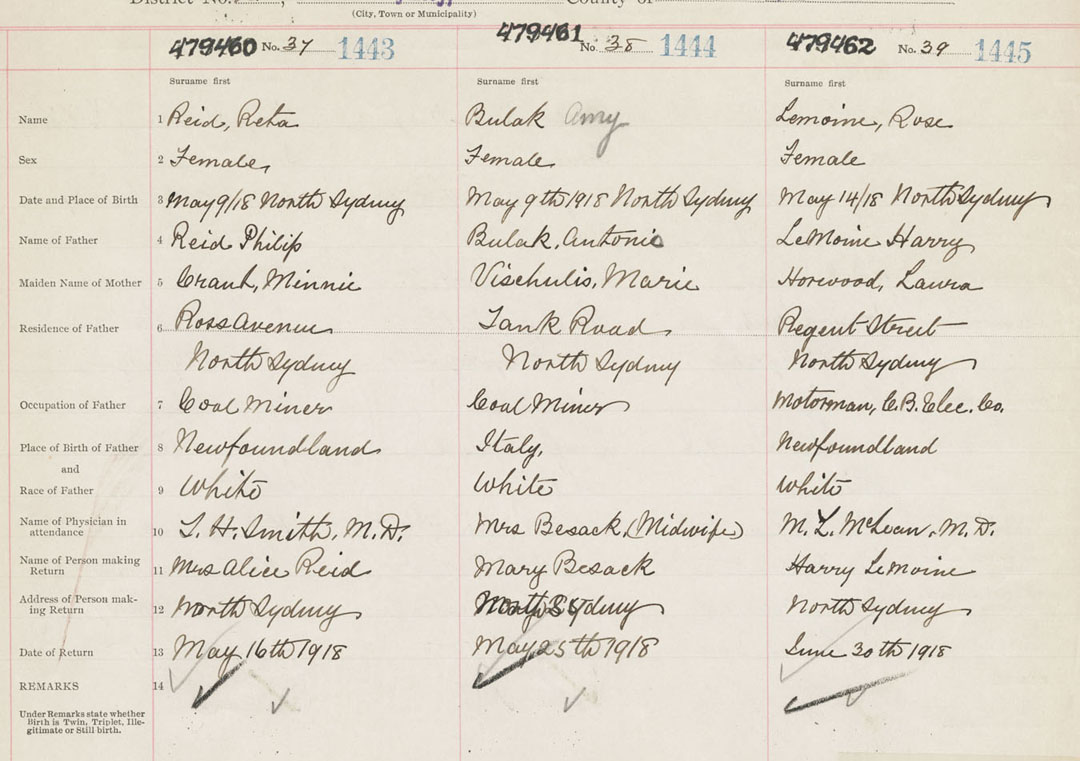 District No.
County of
(City, Town or Municipality)
479460 No. 37 1443 479461 No. 38 1444 479462 No. 39 1445
Surname first Surname first Surname first
Name 1 Reid, Reta Bulak Amy Lemoine, Rose
Sex 2 Female, Female Female
Date and Place of Birth 3 May 9/18 North Sydney May 9th 1918 North Sydney May 14/18 North Sydney
Name of Father 4 Reid Philip Bulak, Antonio LeMoine Harry
Maiden Name of Mother 5 Crank, Minnie Vischulis, Marie Horwood, Laura
Residence of Father 6 Ross Avenue Tank Road Regent Street
North Sydney North Sydney North Sydney
Occupation of Father 7 Coal Miner Coal Miner Motorman, C.B. Elec. Co.
Place of Birth of Father 8 Newfoundland Italy, Newfoundland
and
Race of Father 9 White White White
Name of Physician in
attendance 10 L. H. Smith, M.D. Mrs Besack, (Midwife) M. L. McLean, M.D.
Name of Person making
Return 11 Mrs Alice Reid Mary Besack Harry LeMoine
Address of Person mak-
ing Return 12 North Sydney North Sydney North Sydney
Date of Return 13 May 16th 1918 May 25th 1918 June 30th 1918
REMARKS 14
Under Remarks state whether
Birth is Twin, Triplet, Ille-
gitimate or Still birth.